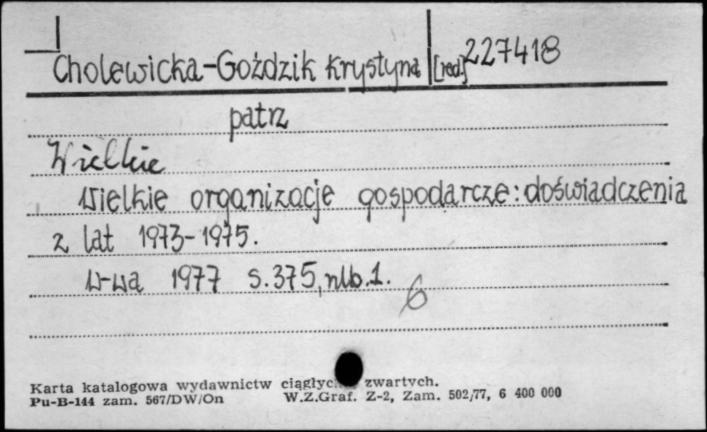 Cholewicka-Goździk Krystyna [red] 227418
patrz
Wielkie
Wielkie organizacje gospodarcze: doświadczenia
z lat 1973-1975.
W-wa 1977 s. 375, nlb. 1.
6
Karta katalogowa wydawnictw zwartych.
Pu-B-144 zam. 567/DW/On W.Z.Graf. Z-2, Zam. 502/77, 6 400 000